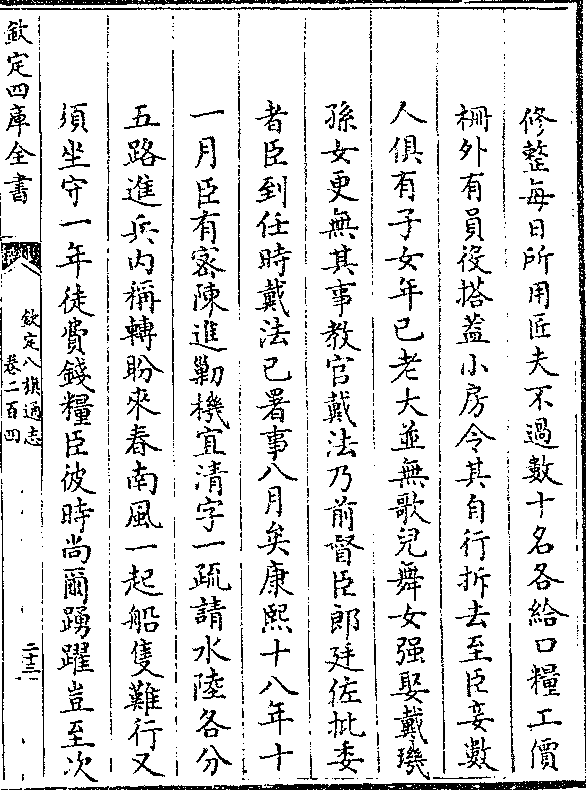 修整每日所用匠夫不過數十名各給口糧工價
柵外有員役搭蓋小房令其自行拆去至臣妾數
人俱有子女年已老大並無歌兒舞女强娶戴璣
孫女更無其事教官戴法乃前督臣郎廷佐批委
者臣到任時戴法已署事八月矣康熙十八年十
一月臣有密陳進勦機宜清字一疏請水陸各分
五路進兵内稱轉盼來春南風一起船隻難行又
須坐守一年徒費錢糧臣彼時尚爾踴躍豈至次
欽定四庫全書
欽定八旗通志
卷二百四
二十三